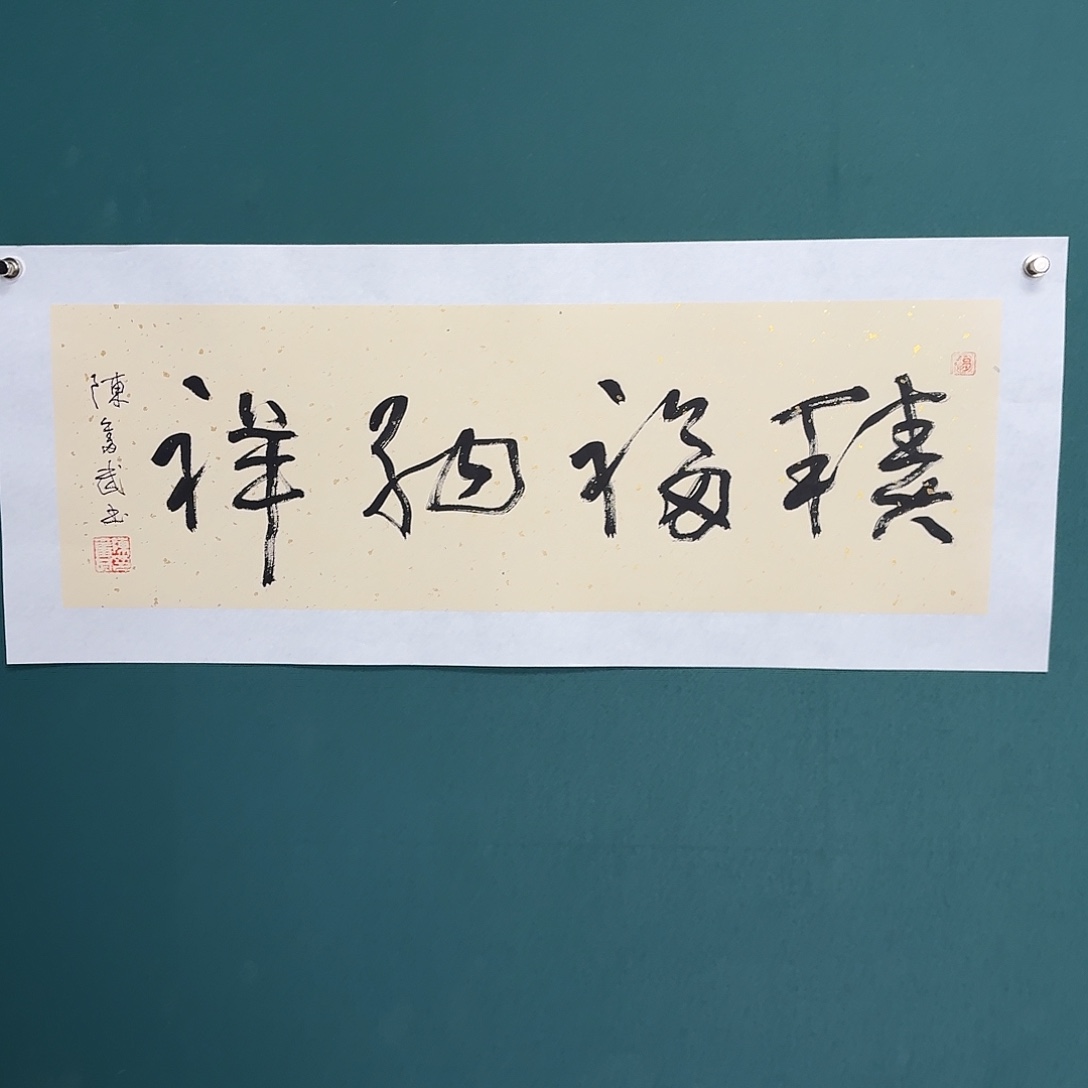 積福納祥
陳武书